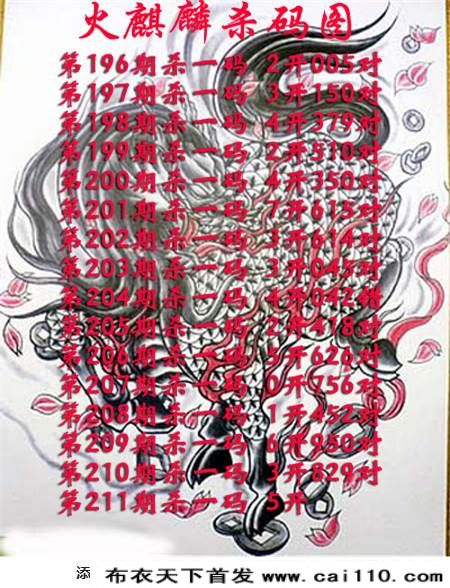 火麒麟杀码图
第196期杀一码 2开005对
第197期杀一码 3开150对
第198期杀一码 4开379对
第199期杀一码 2开510对
第200期杀一码 4开350对
第201期杀一码 7开615对
第202期杀一码 3开614对
第203期杀一码 3开045对
第204期杀一码 4开042错
第205期杀一码 2开418对
第206期杀一码 5开626对
第207期杀一码 0开756对
第208期杀一码 1开452对
第209期杀一码 6开950对
第210期杀一码 3开829对
第211期杀一码 5开
添 布衣天下首发 www.cai110.com